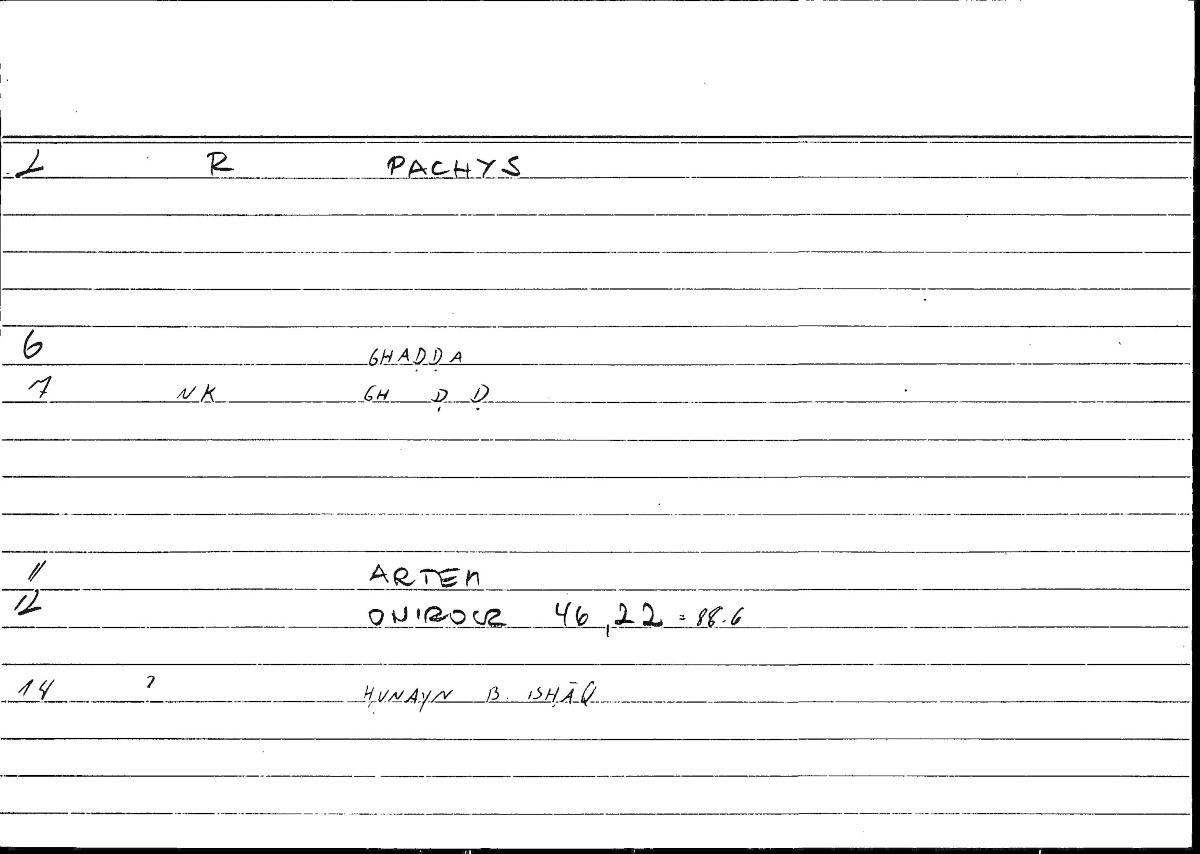 1 R PACHYS
6 GHAḌḌA
7 NK GH Ḍ Ḍ
11 ARTEM
12 ONIROCR 46,22 = 88.6
14 ? ḤUNAYN B. ISḤĀQ